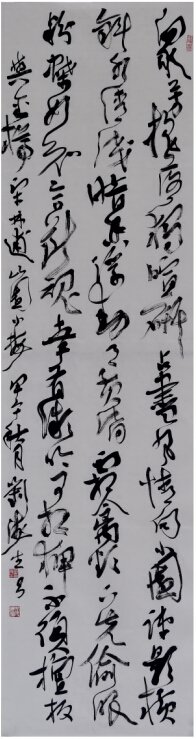 眾芳搖落獨暄妍占盡風情向小園疏影橫
斜水清淺暗香浮動月黃昏霜禽欲下先偷眼
粉蝶如知合斷魂幸有微吟可相狎不須檀板
共金樽 宋林逋山園小梅 甲午秋月劉